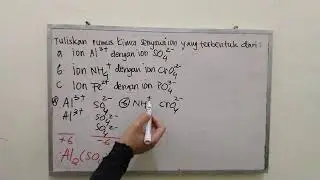 Tuliskan rumus kimia senyawa ion yang terbentuk dari :
a ion Al³⁺ dengan ion SO₄²⁻
b ion NH₄⁺ dengan ion CrO₄²⁻
c ion Fe²⁺ dengan ion PO₄³⁻
a Al³⁺ SO₄²⁻ b NH₄⁺ CrO₄²⁻
Al³⁺ SO₄²⁻
SO₄²⁻
+6 -6
Al₂(SO